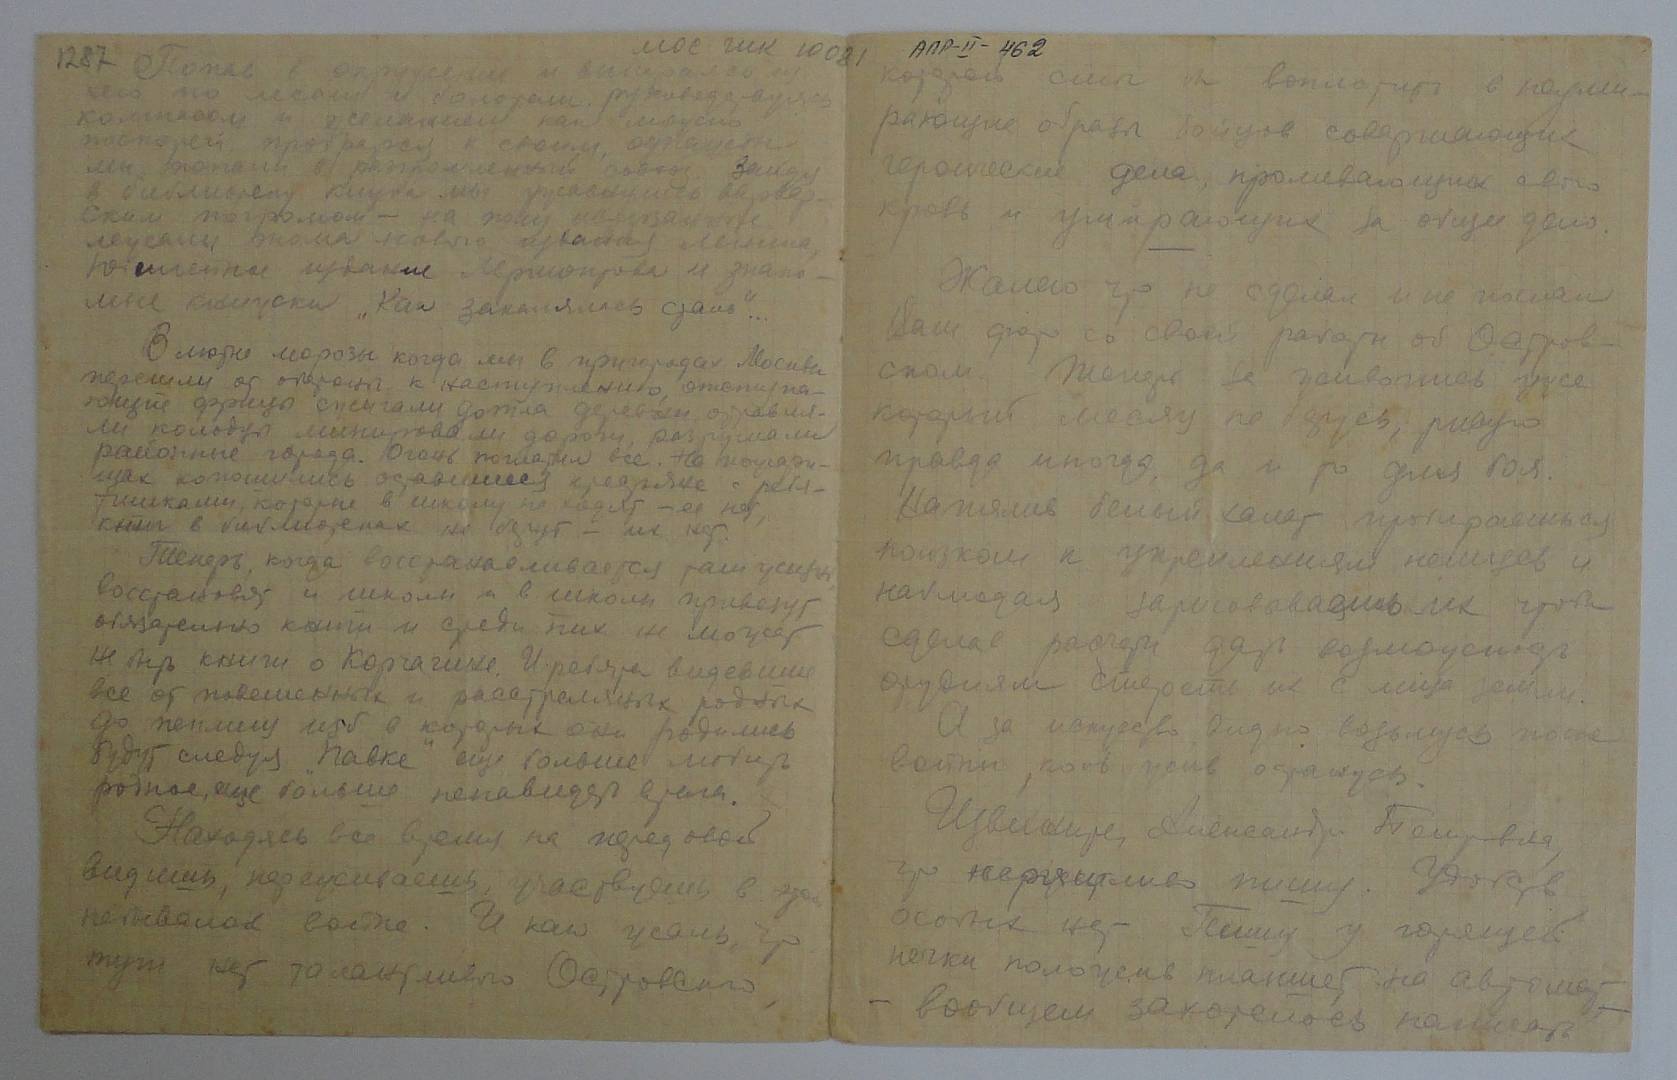 1287
МОС ГИК 10081
Попав в окружение и выбираясь из
него по лесам и болотам руководствуясь
компасом и желанием как можно
поскорей пробраться к своим,
мы попали в разгромленный Зайдя
в библиотеку клуба мы ужаснулись варвар-
ским погромом — на полу
лежали тома нового издания Ленина,
юбилейное издание Лермонтова и знако-
мые книжки „Как закалялась сталь"...
В лютые морозы когда мы в пригородах Москвы
перешли от обороны к наступлению, отступа-
ющие фрицы сжигали дотла деревни отравля-
ли колодцы минировали дороги, разрушали
районные города. Огонь поглатил все. На пожари-
щах копошились оставшиеся крестьяне с ребя-
тишками, которые в школу не ходят — ее нет,
книг в библиотеках не берут — их нет.
Теперь, когда восстанавливается там жизнь,
восстановят и школы и в школы привезут
обязательно книги и среди них не может
не быть книги о Корчагине. И ребята видевшие
все от повешенных и расстреляных родных
до пепелищ изб в которых они родились
будут следуя „Павке" еще больше любить
родное, еще больше ненавидеть врага.
Находясь все время на передовой
видишь, переживаешь, участвуешь в
небывалой войне. И как жаль, что
тут нет талантливого Островского,
АПР-II-462
который смог бы воплотить в неуми-
рающие образы бойцов совершающих
героические дела, проливающих свою
кровь и умирающих за общее дело.
Жалею что не сделал и не послал
Вам фото со своей работы об Остров-
ском. Теперь за живопись уже
который месяц не берусь, рисую
правда иногда, да и то для боя.
Напялив белый халат пробираешься
ползком к укреплениям немцев и
наблюдая зарисовываешь их чтобы
сделав расчеты дать возможность
орудиям стереть их с лица земли.
А за искусство видно возьмусь после
войны, коль жив останусь.
Извините, Александра Петровна,
что неразборчиво пишу. Удобств
особых нет Пишу у горящей
печки положив планшет на автомат
— вообщем захотелось написать